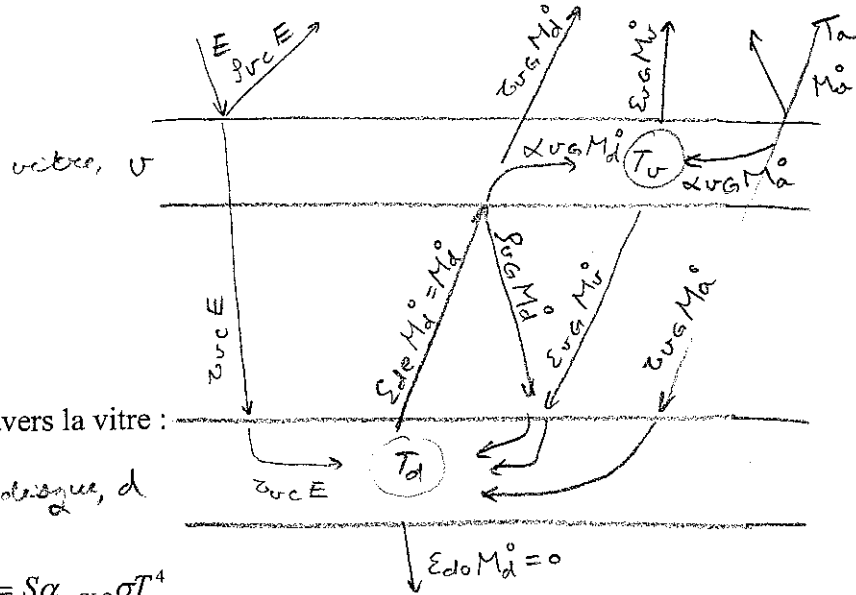 E
ρvc E
τvG M°d
εvG M°v
Ta
M°a
vitre, v
αvG M°d
Tv
αvG M°a
τvc E
εde M°d = M°d
ρvG M°d
εvG M°v
τvG M°a
avers la vitre :
Td
τvc E
disque, d
εdo M°d = 0
σT⁴